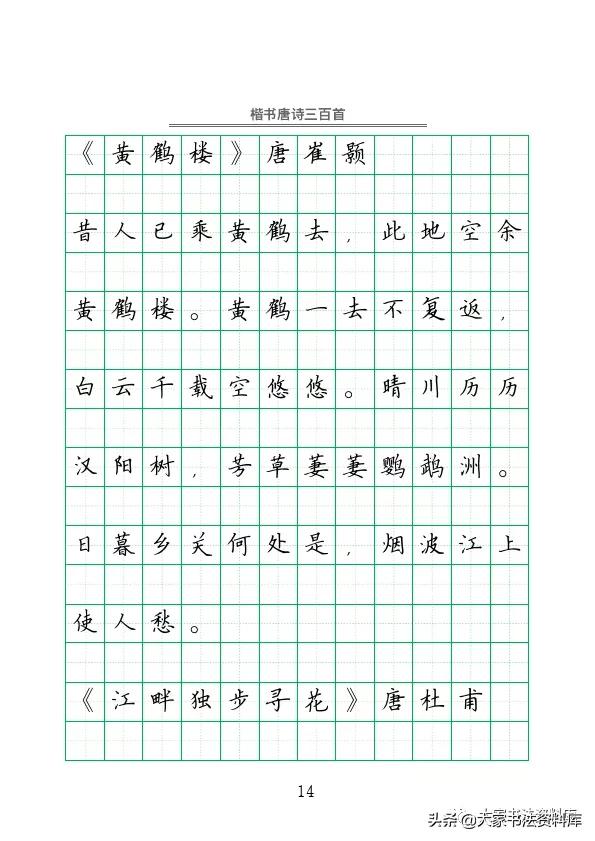 楷书唐诗三百首
《黄鹤楼》唐崔颢
昔人已乘黄鹤去，此地空余
黄鹤楼。黄鹤一去不复返，
白云千载空悠悠。晴川历历
汉阳树，芳草萋萋鹦鹉洲。
日暮乡关何处是，烟波江上
使人愁。
《江畔独步寻花》唐杜甫
14
大家书法资料库
头条@大家书法资料库